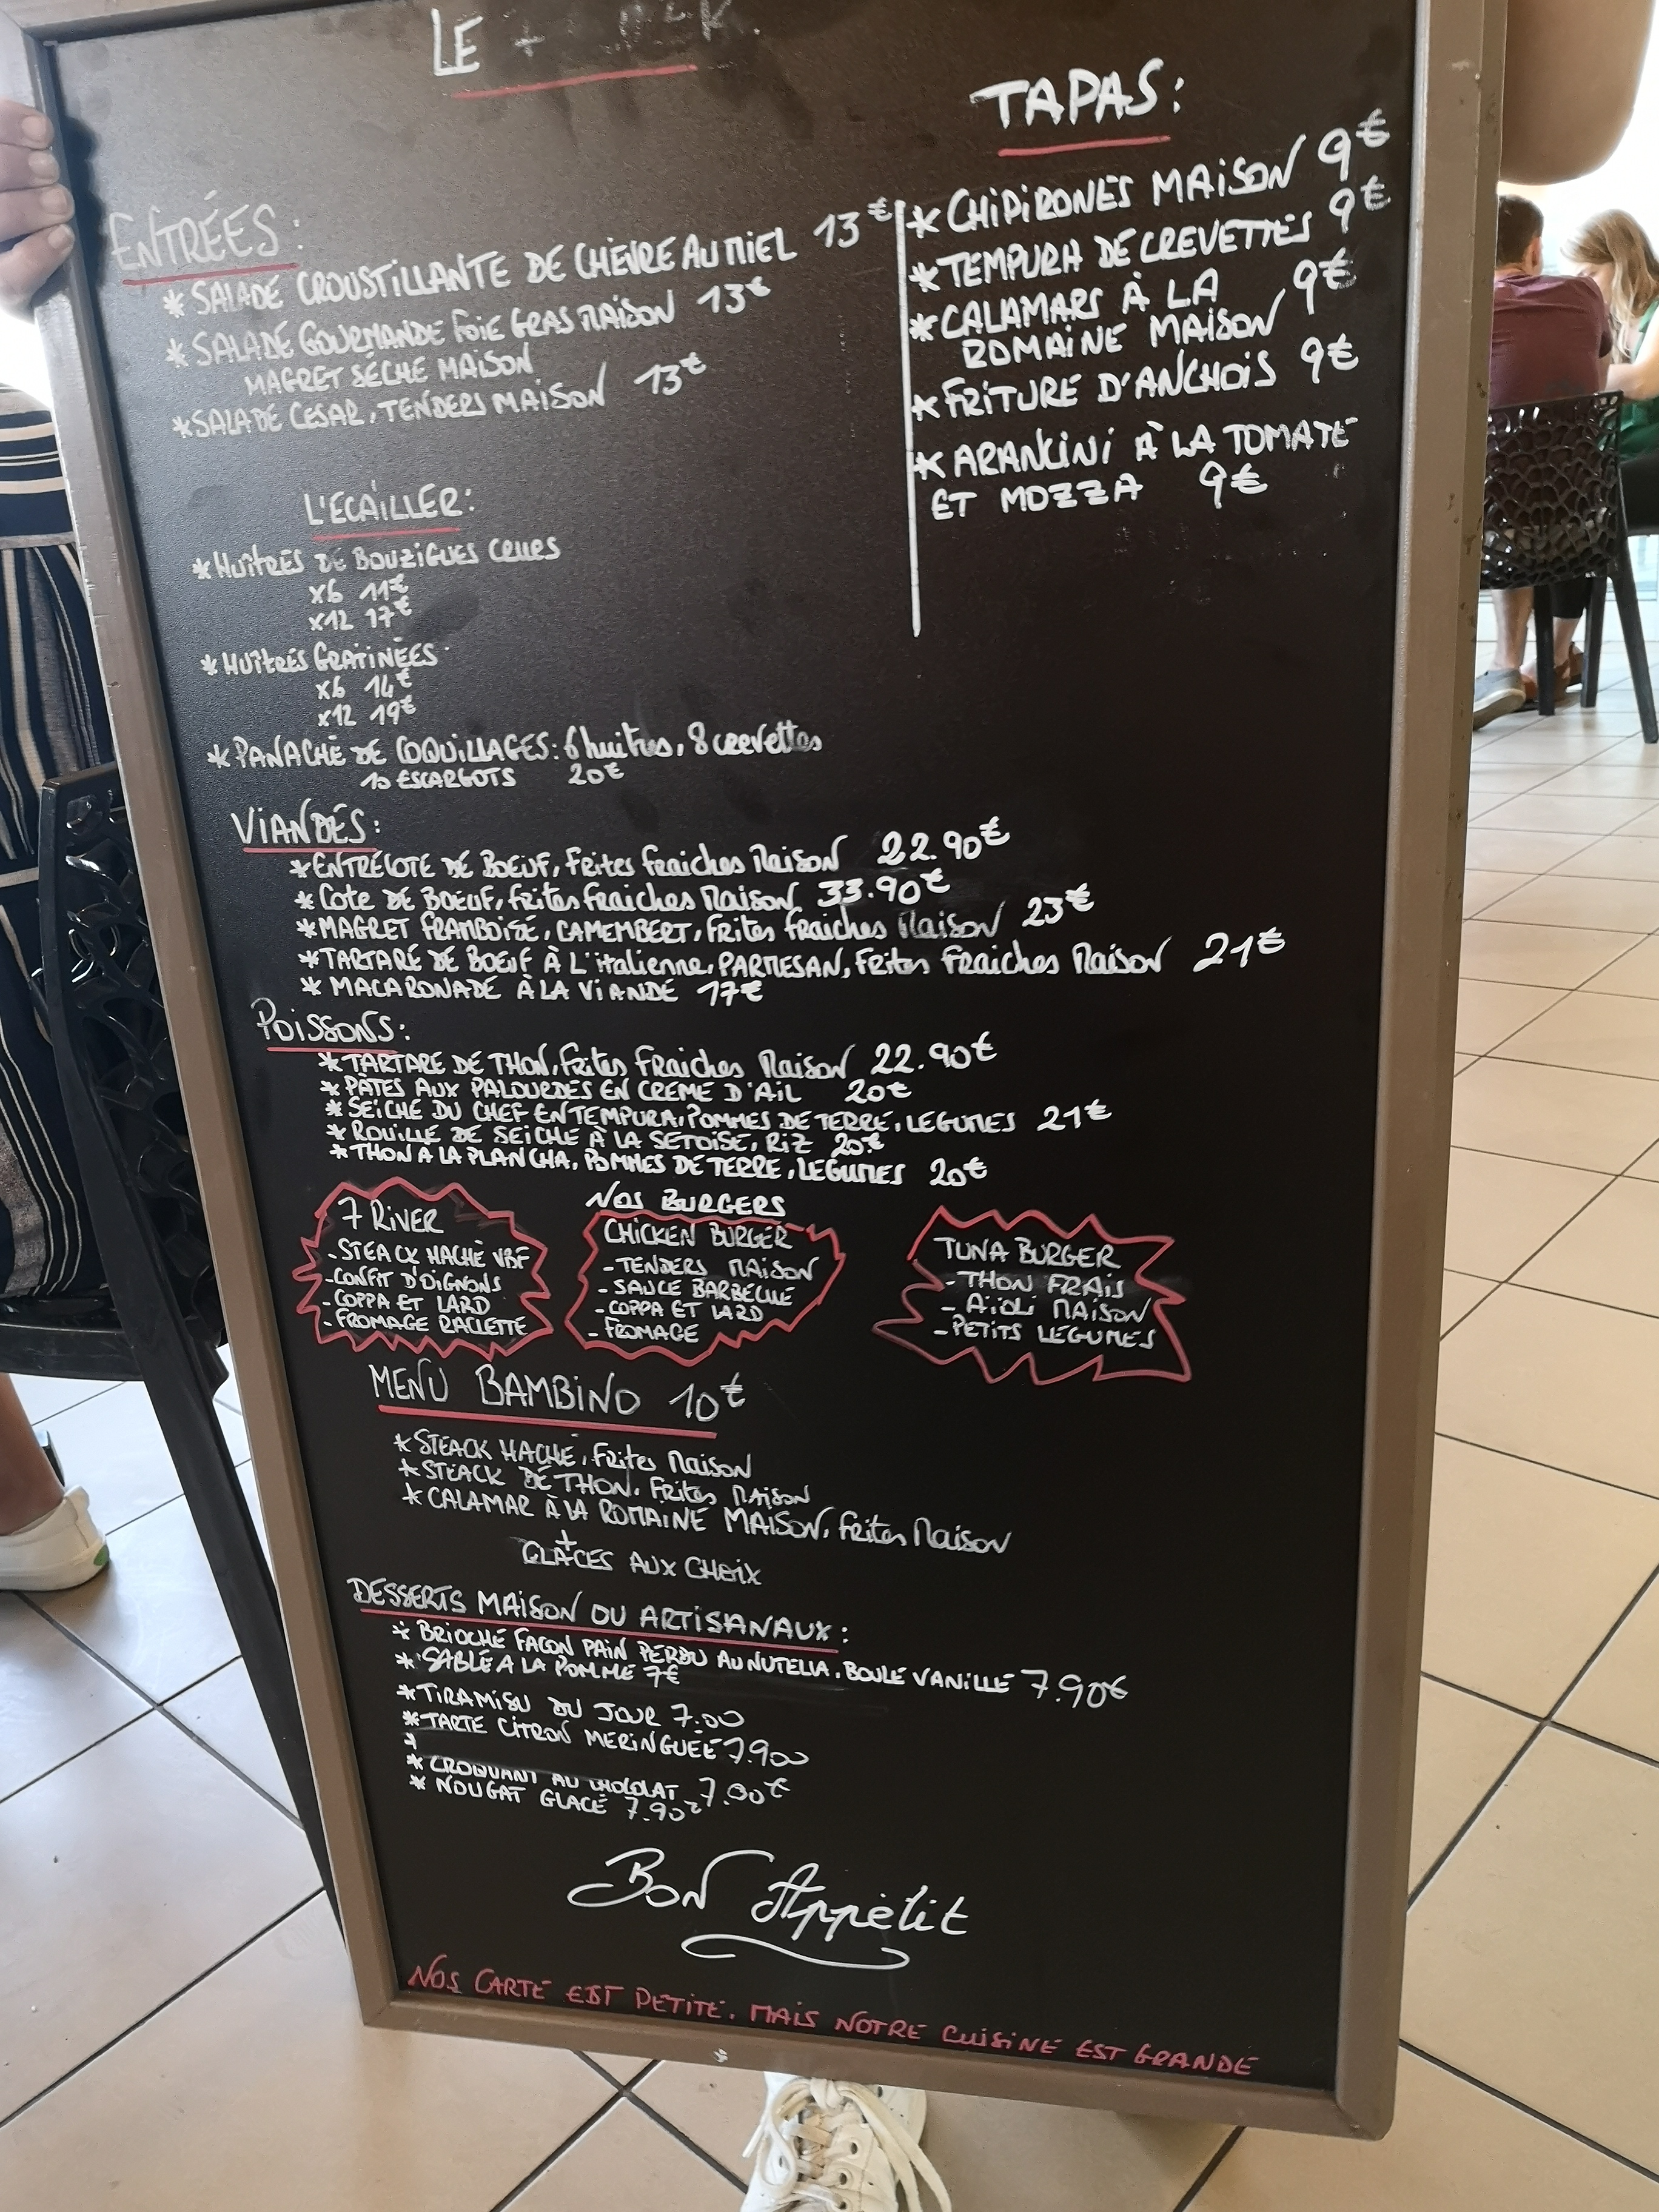 LE
ENTRÉES:
* SALADE CROUSTILLANTE DE CHÈVRE AU MIEL 13€
* SALADE GOURMANDE FOIE GRAS MAISON 13€
MAGRET SÉCHÉ MAISON
* SALADE CESAR, TENDERS MAISON 13€
TAPAS:
* CHIPIRONES MAISON 9€
* TEMPURA DE CREVETTES 9€
* CALAMARS À LA
ROMAINE MAISON 9€
* FRITURE D'ANCHOIS 9€
* ARANCINI À LA TOMATE
ET MOZZA 9€
L'ECAILLER:
* HUÎTRES DE BOUZIGUES CRUES
x6 11€
x12 17€
* HUÎTRES GRATINÉES
x6 14€
x12 19€
* PANACHÉ DE COQUILLAGES: 6 huitres, 8 crevettes
10 ESCARGOTS 20€
VIANDES:
* ENTRECOTE DE BOEUF, Frites Fraiches Maison 22.90€
* COTE DE BOEUF, Frites Fraiches Maison 33.90€
* MAGRET FRAMBOISE, CAMEMBERT, Frites fraiches Maison 23€
* TARTARE DE BOEUF À L'italienne, PARMESAN, Frites Fraiches Maison 21€
* MACARONADE À LA VIANDE 17€
POISSONS:
* TARTARE DE THON, Frites Fraiches Maison 22.90€
* PÂTES AUX PALOURDES EN CREME D'AIL 20€
* SEICHE DU CHEF EN TEMPURA, POMMES DE TERRE, LEGUMES 21€
* ROUILLE DE SEICHE À LA SETOISE, RIZ 20€
* THON A LA PLANCHA, POMMES DE TERRE, LEGUMES 20€
NOS BURGERS
7 RIVER
- STEACK HACHÉ VBF
- CONFIT D'OIGNONS
- COPPA ET LARD
- FROMAGE RACLETTE
CHICKEN BURGER
- TENDERS MAISON
- SAUCE BARBECUE
- COPPA ET LARD
- FROMAGE
TUNA BURGER
- THON FRAIS
- AÏOLI MAISON
- PETITS LEGUMES
MENU BAMBINO 10€
* STEACK HACHÉ, Frites Maison
* STEACK DE THON, Frites MAISON
* CALAMAR À LA ROMAINE MAISON, Frites Maison
+
GLACES AUX CHOIX
DESSERTS MAISON OU ARTISANAUX:
* BRIOCHE FACON PAIN PERDU AU NUTELLA, BOULE VANILLE 7.90€
* SABLÉ A LA POMME 7€
* TIRAMISU DU JOUR 7.00
* TARTE CITRON MERINGUÉE 7.900
*
* CROQUANT AU CHOCOLAT 7.90€
* NOUGAT GLACÉ 7.90€
BON Appétit
NOS CARTE EST PETITE, MAIS NOTRE CUISINE EST GRANDE